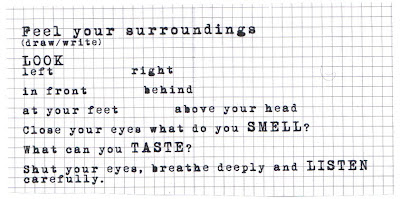 Feel your surroundings
(draw/write)
LOOK
left right
in front behind
at your feet above your head
Close your eyes what do you SMELL?
What can you TASTE?
Shut your eyes, breathe deeply and LISTEN
carefully.